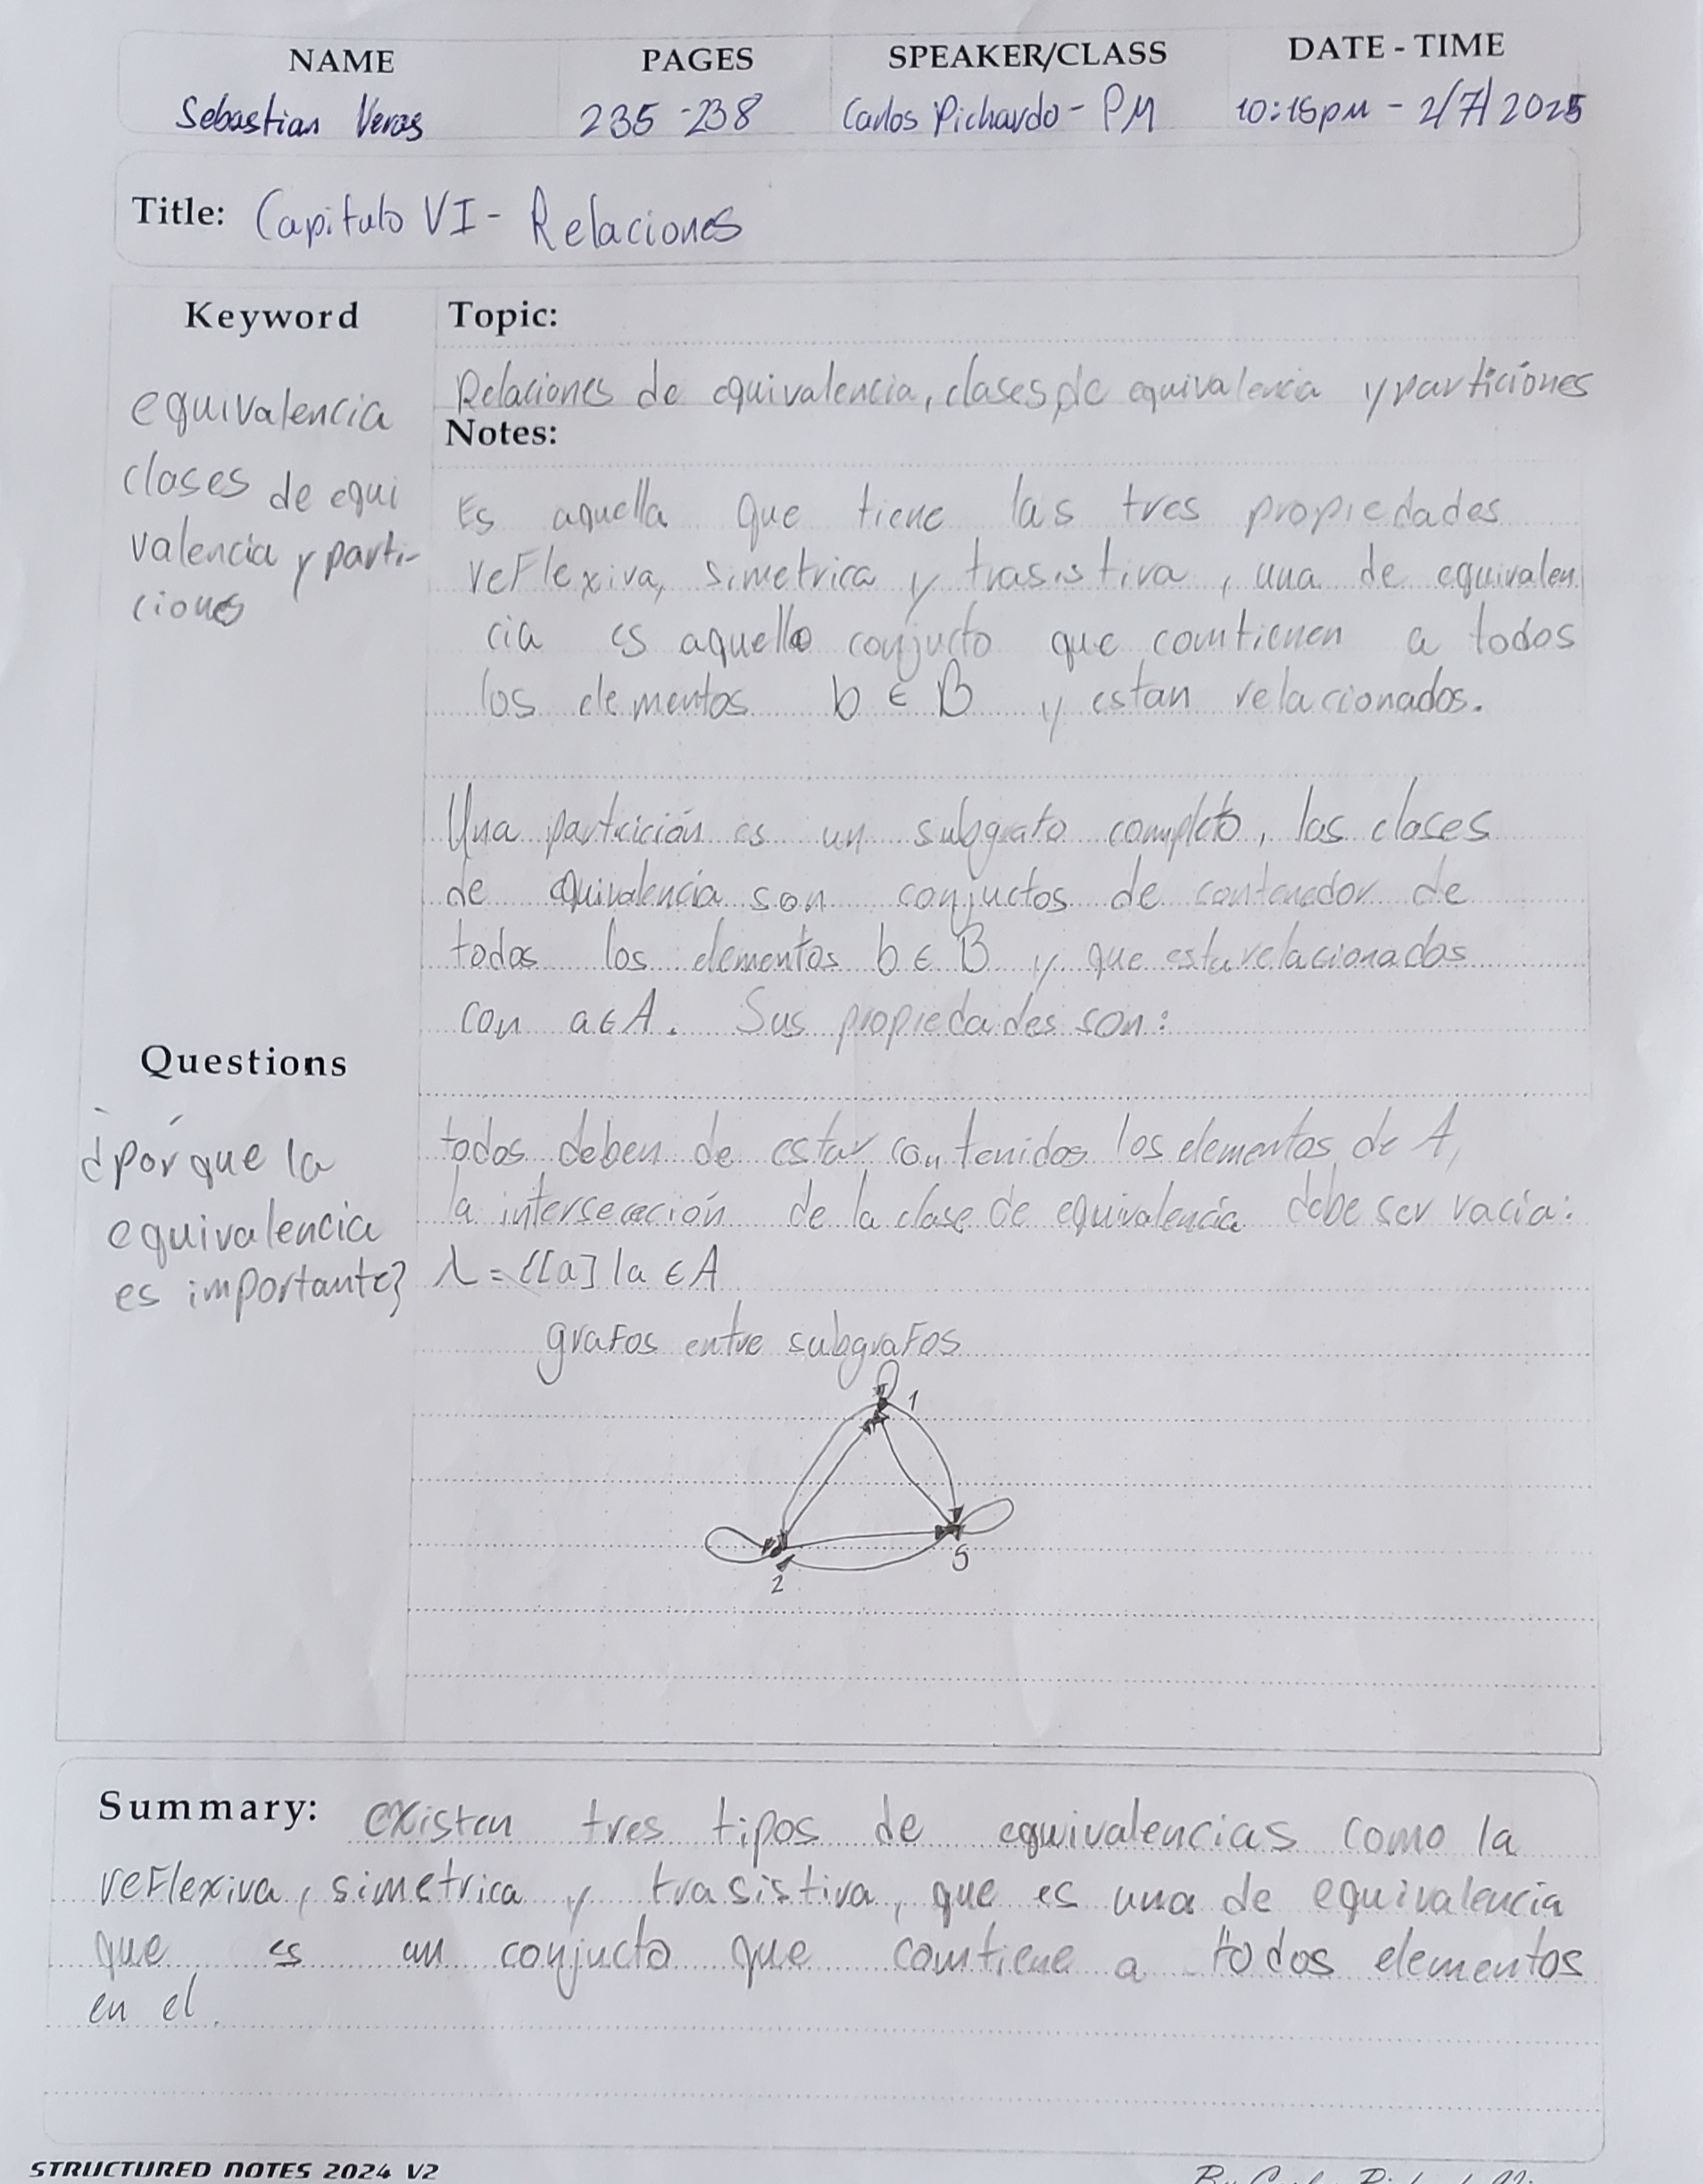 NAME PAGES SPEAKER/CLASS DATE - TIME
Sebastian Veras 235-238 Carlos Pichardo - PM 10:15pm - 2/7/2025
Title: Capitulo VI - Relaciones
Keyword
equivalencia
clases de equi
valencia y parti-
ciones
Topic:
Relaciones de equivalencia, clases de equivalencia y particiones
Notes:
Es aquella que tiene las tres propiedades
reflexiva, simetrica y trasistiva, una de equivalen
cia es aquello conjucto que comtienen a todos
los elementos b ∈ B y estan relacionados.
Una partxición es un subgrafo completo, las clases
de equivalencia son conjuctos de contenedor de
todos los elementos b ∈ B y que esta relacionados
con a ∈ A. Sus propiedades son:
Questions
¿por que la
equivalencia
es importante?
todos deben de estar contenidos los elementos de A,
la intersección de la clase de equivalencia debe ser vacia:
λ = {[a] | a ∈ A
grafos entre subgrafos
1
2
5
Summary: existen tres tipos de equivalencias como la
reflexiva, simetrica y trasistiva, que es una de equivalencia
que es un conjucto que comtiene a todos elementos
en el.
STRUCTURED NOTES 2024 V2
By Carlos